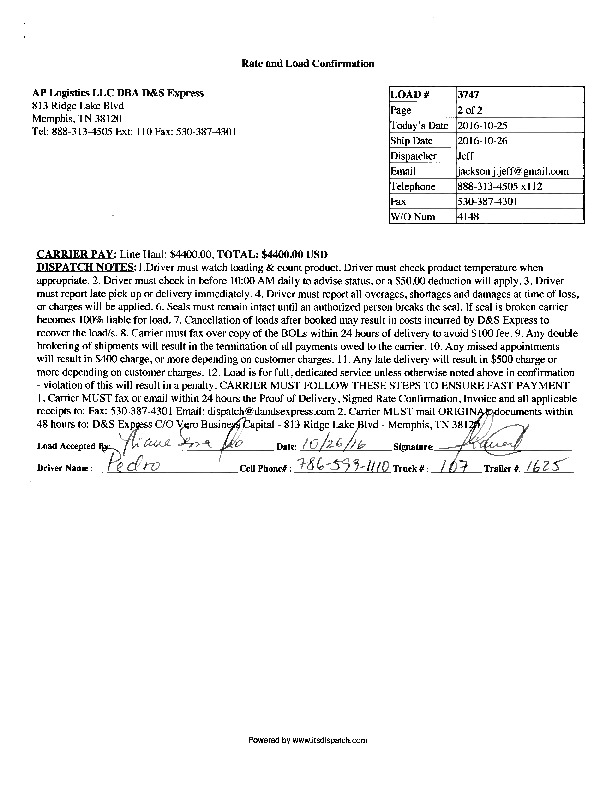 Rate and Load Confirmation
AP Logistics LLC DBA D&S Express
813 Ridge Lake Blvd
Memphis, TN 38120
Tel: 888-313-4505 Ext: 110 Fax: 530-387-4301
LOAD # 3747
Page 2 of 2
Today's Date 2016-10-25
Ship Date 2016-10-26
Dispatcher Jeff
Email jackson.j.jeff@gmail.com
Telephone 888-313-4505 x112
Fax 530-387-4301
W/O Num 4148
CARRIER PAY: Line Haul: $4400.00, TOTAL: $4400.00 USD
DISPATCH NOTES: 1.Driver must watch loading & count product. Driver must check product temperature when
appropriate. 2. Driver must check in before 10:00 AM daily to advise status, or a $50.00 deduction will apply. 3. Driver
must report late pick up or delivery immediately. 4. Driver must report all overages, shortages and damages at time of loss,
or charges will be applied. 6. Seals must remain intact until an authorized person breaks the seal. If seal is broken carrier
becomes 100% liable for load. 7. Cancellation of loads after booked may result in costs incurred by D&S Express to
recover the load/s. 8. Carrier must fax over copy of the BOLs within 24 hours of delivery to avoid $100 fee. 9. Any double
brokering of shipments will result in the termination of all payments owed to the carrier. 10. Any missed appointments
will result in $400 charge, or more depending on customer charges. 11. Any late delivery will result in $500 charge or
more depending on customer charges. 12. Load is for full, dedicated service unless otherwise noted above in confirmation
- violation of this will result in a penalty. CARRIER MUST FOLLOW THESE STEPS TO ENSURE FAST PAYMENT
1. Carrier MUST fax or email within 24 hours the Proof of Delivery, Signed Rate Confirmation, Invoice and all applicable
receipts to: Fax: 530-387-4301 Email: dispatch@dandsexpress.com 2. Carrier MUST mail ORIGINAL documents within
48 hours to: D&S Express C/O Vero Business Capital - 813 Ridge Lake Blvd - Memphis, TN 38120
Load Accepted By: Date: 10/26/16 Signature
Driver Name : Pedro Cell Phone# : 786-599-1110 Truck # : 107 Trailer #. 1625
Powered by www.itsdispatch.com